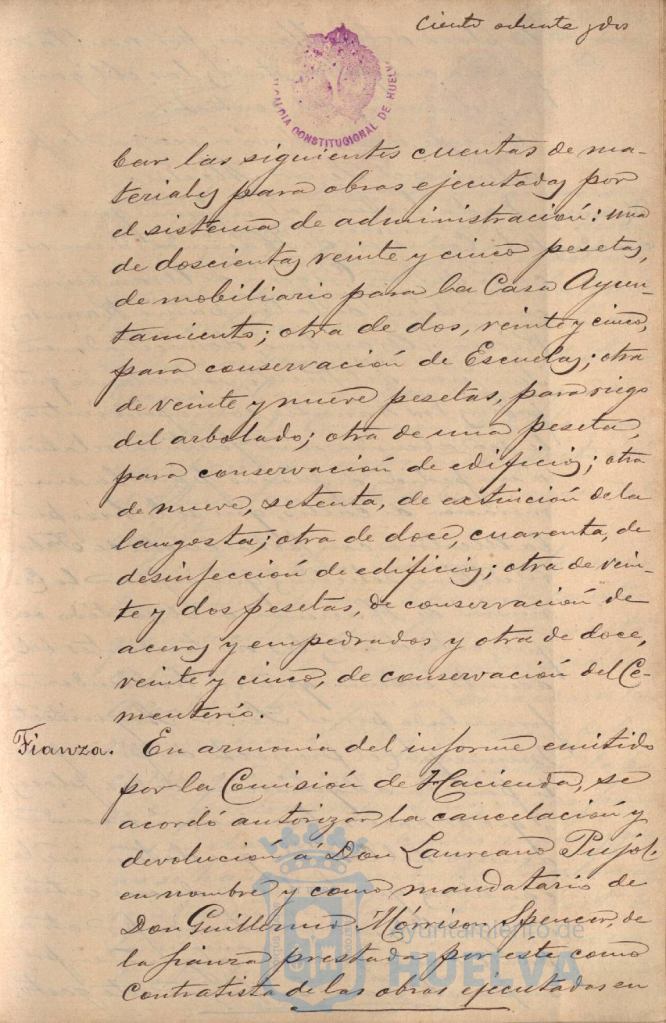 Ciento ochenta y dos
ALCALDIA CONSTITUCIONAL DE HUELVA
bar las siguientes cuentas de ma-
teriales para obras ejecutadas por
el sistema de administración: una
de doscientas veinte y cinco pesetas,
de mobiliario para la Casa Ayun-
tamiento; otra de dos, veinte y cinco,
para conservación de Escuelas; otra
de veinte y nueve pesetas, para riego
del arbolado; otra de una peseta,
para conservación de edificios; otra
de nueve, setenta, de extinción de la
langosta; otra de doce, cuarenta, de
desinfección de edificios; otra de vein-
te y dos pesetas, de conservación de
aceras y empedrados y otra de doce,
veinte y cinco, de conservación del Ce-
menterio.
Fianza. En armonía del informe emitido
por la Comisión de Hacienda, se
acordó autorizar la cancelación y
devolución á Don Laureano Pujol,
en nombre y como mandatario de
Don Guillermo Mórrison Spencer, de
la fianza prestada por este como
contratista de las obras ejecutadas en
Ayuntamiento de
HUELVA